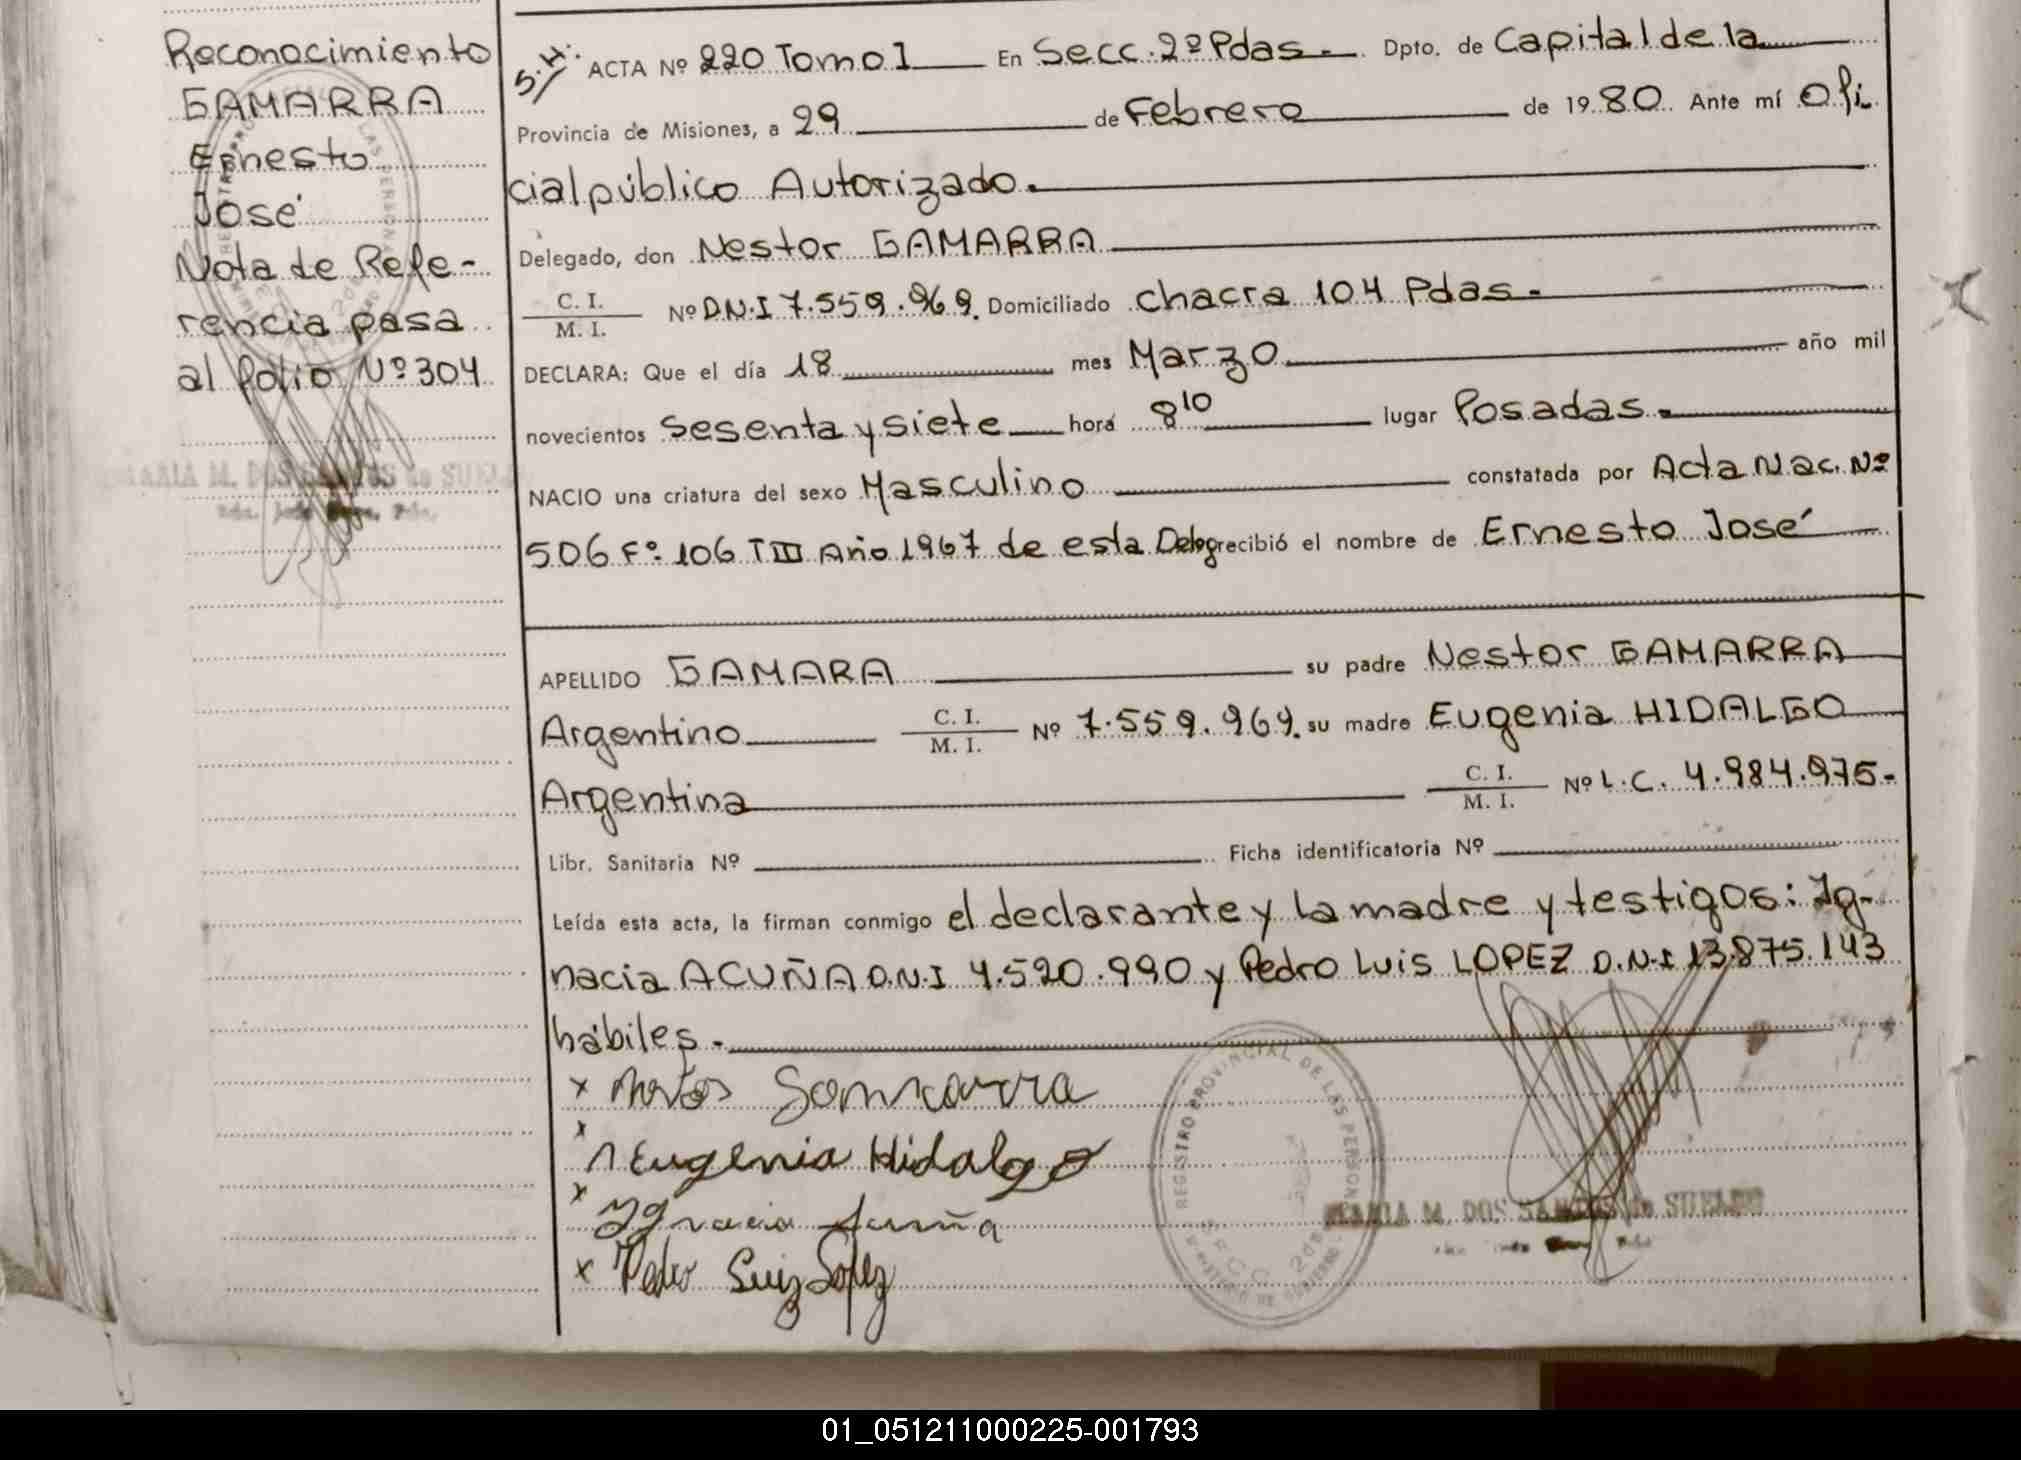 Reconocimiento
GAMARRA
Ernesto
José
Nota de Refe-
rencia pasa
al folio Nº 304
MARIA M. DOS SANTOS de SUELDO
S.H. ACTA Nº 220 Tomo I En Secc. 2º Pdas. Dpto. de Capital de la
Provincia de Misiones, a 29 de Febrero de 1980. Ante mí Ofi
cial público Autorizado.
Delegado, don Nestor GAMARRA
C. I.
M. I.
Nº D.N.I 7.559.969. Domiciliado chacra 104 Pdas.
DECLARA: Que el día 18 mes Marzo año mil
novecientos sesenta y siete hora 8 10 lugar Posadas.
NACIO una criatura del sexo Masculino constatada por Acta Nac. Nº
506 Fº 106 T III Año 1967 de esta Deleg recibió el nombre de Ernesto José
APELLIDO GAMARA su padre Nestor GAMARRA
Argentino C. I. M. I. Nº 7.559.969. su madre Eugenia HIDALGO
Argentina C. I. M. I. Nº L.C. 4.984.975.-
Libr. Sanitaria Nº Ficha identificatoria Nº
Leída esta acta, la firman conmigo el declarante y la madre y testigos: Ig-
nacia ACUÑA D.N.I 4.520.990 y Pedro Luis LOPEZ D.N.I 13.875.143
hábiles.
x Gamarra
x Eugenia Hidalgo
x Ygnacia Acuña
x Pedro Luiz Lopez
REGISTRO PROVINCIAL DE LAS PERSONAS
MARIA M. DOS SANTOS de SUELDO
01_051211000225-001793